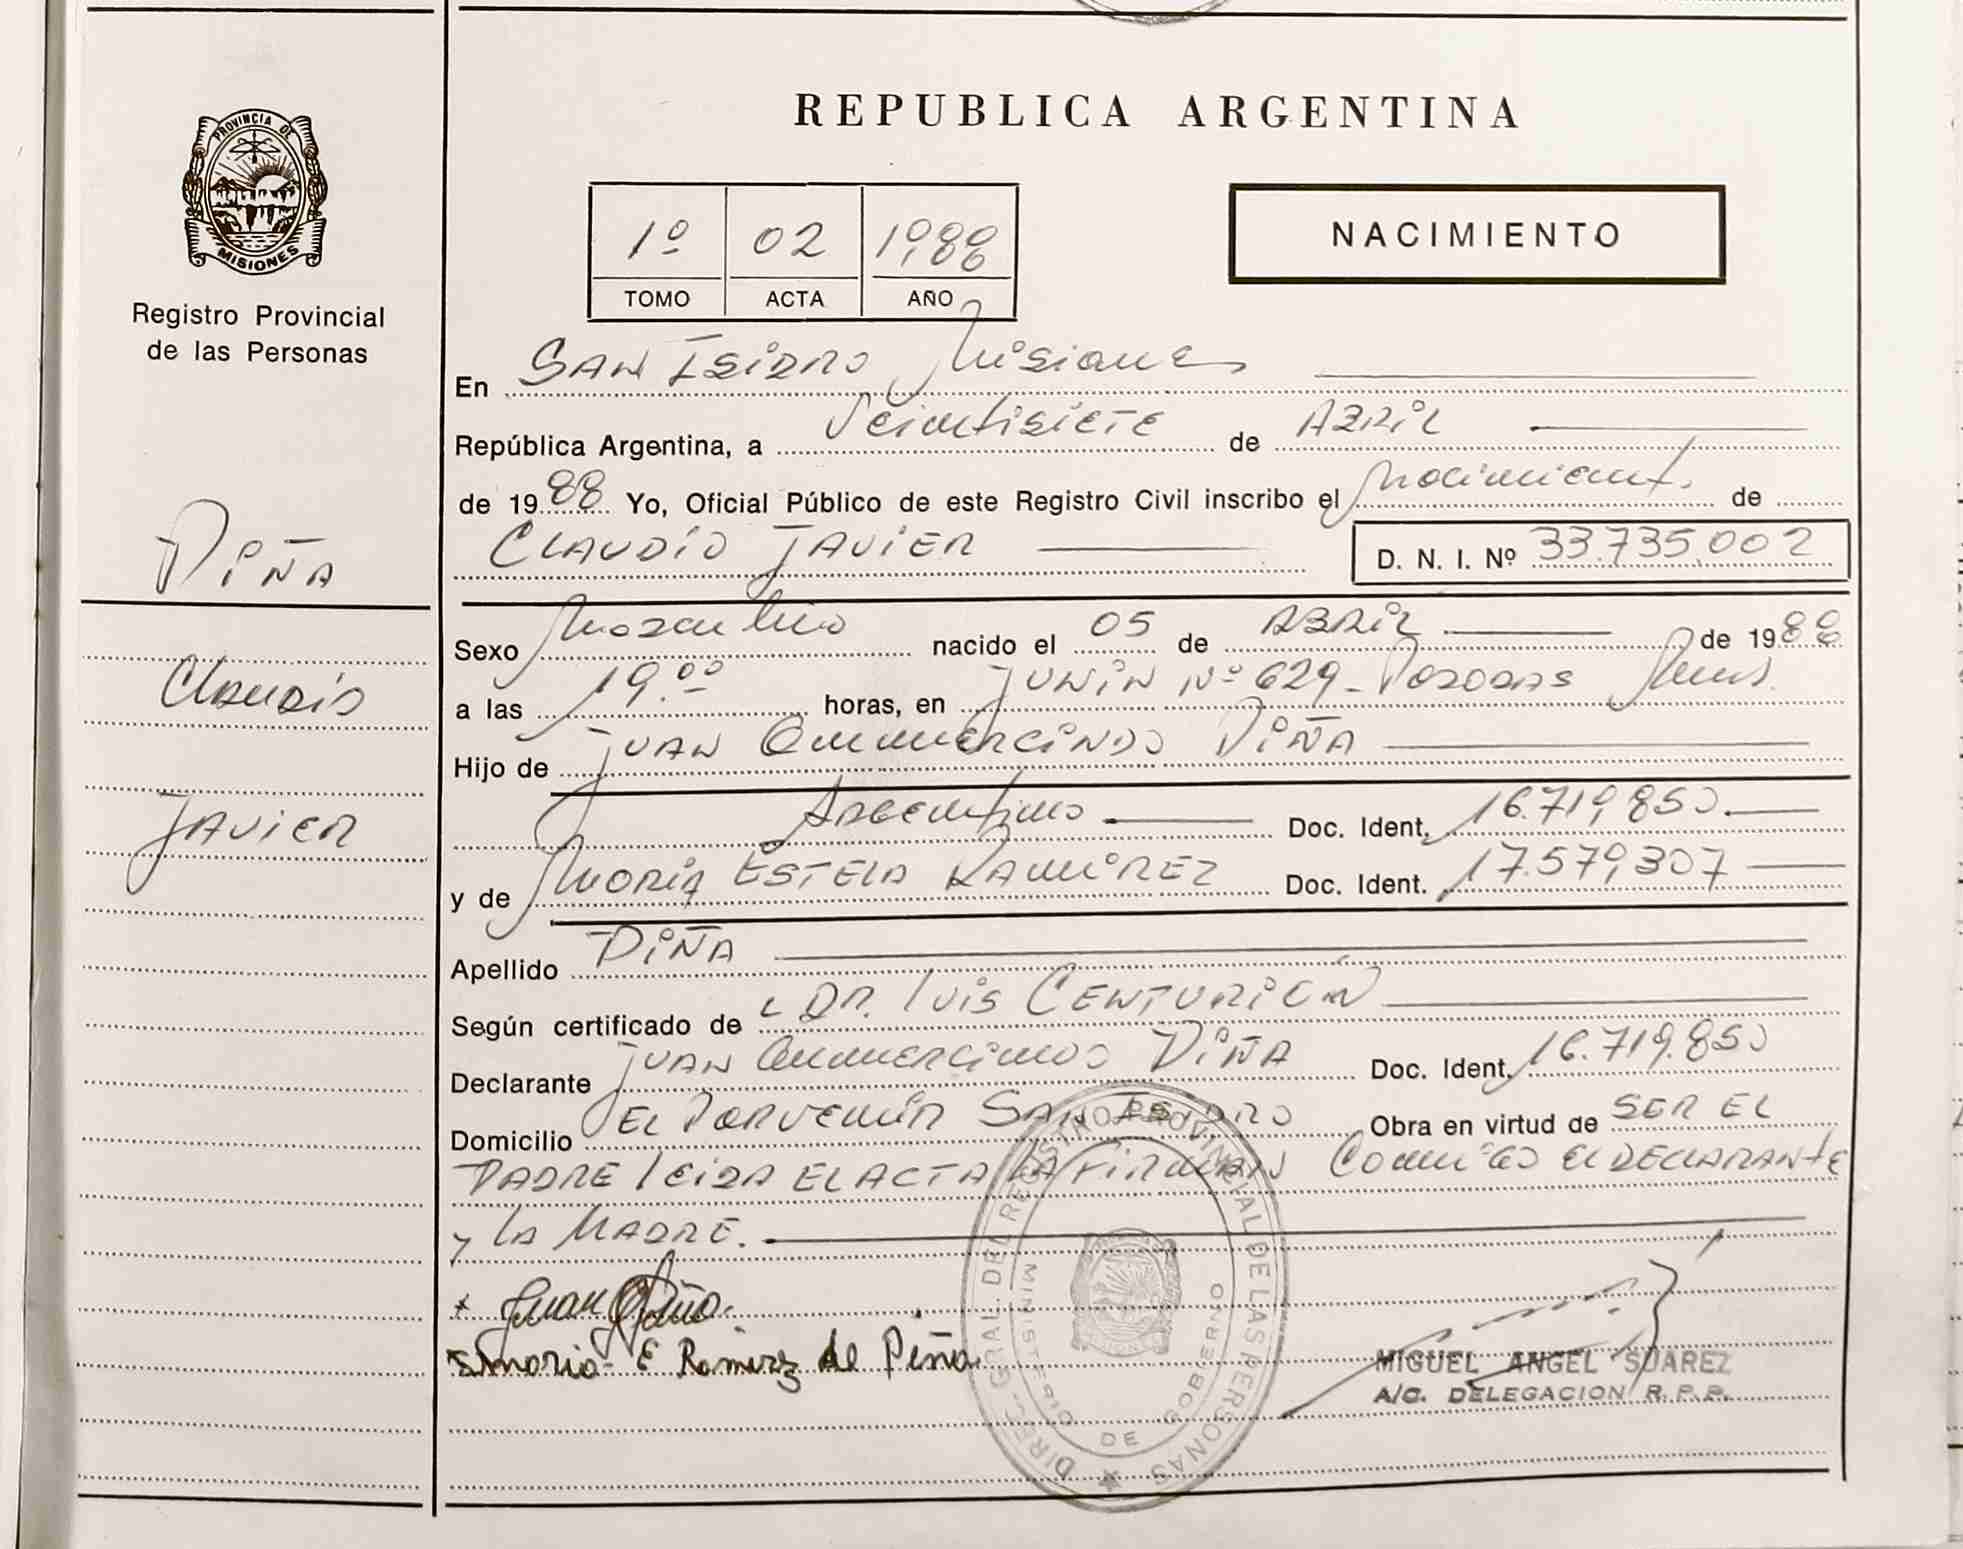 PROVINCIA DE
MISIONES
Registro Provincial
de las Personas
PIÑA
Claudio
JAVIER
REPUBLICA ARGENTINA
1º 02 1988
TOMO ACTA AÑO
NACIMIENTO
En SAN ISIDRO Misiones
República Argentina, a Veintisiete de ABRIL
de 1988 Yo, Oficial Público de este Registro Civil inscribo el Nacimiento de
CLAUDIO JAVIER D. N. I. Nº 33.735.002
Sexo Masculino nacido el 05 de ABRIL de 1988
a las 19.00 horas, en JUNIN Nº 629 - POSADAS Mnes.
Hijo de JUAN Gumercindo PIÑA
Argentino Doc. Ident. 16.719,850
y de MARIA ESTELA RAMIREZ Doc. Ident. 17.579,307
Apellido PIÑA
Según certificado de DR. LUIS CENTURIÓN
Declarante JUAN Gumercindo PIÑA Doc. Ident. 16.719.850
Domicilio EL PORVENIR SAN ISIDRO Obra en virtud de SER EL
PADRE LEIDA EL ACTA LA FIRMAN Conmigo el DECLARANTE
y LA MADRE.
Juan G Piña.
Maria E Ramirez de Piña
DIREC. GRAL. DEL REGISTRO PROVINCIAL DE LAS PERSONAS
MINISTERIO DE GOBIERNO
MIGUEL ANGEL SUAREZ
A/C. DELEGACION R.P.P.